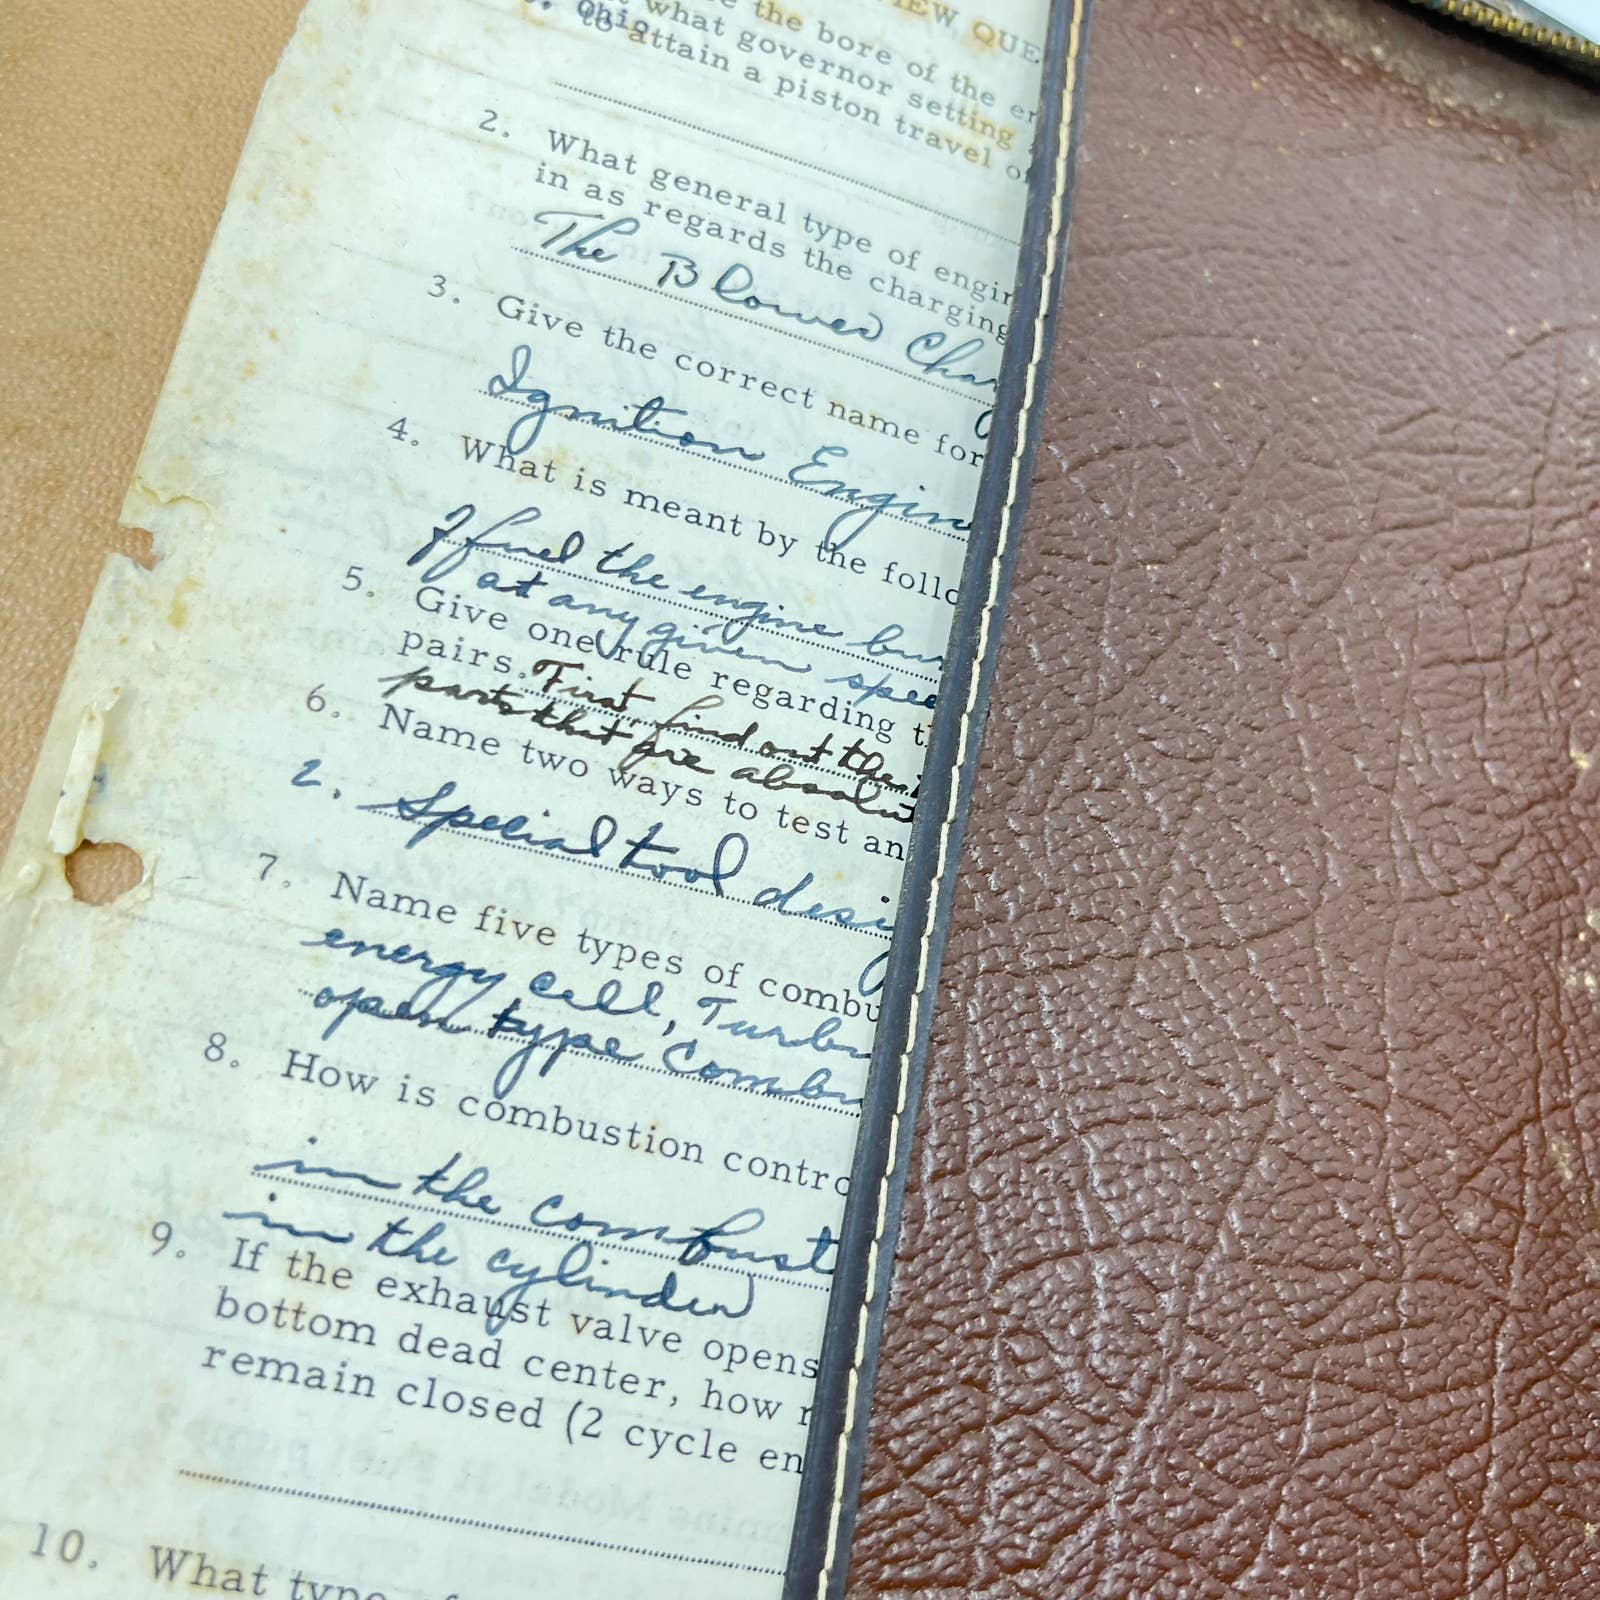 IEW QUE
e the bore of the er
what governor setting
to attain a piston travel of
2. What general type of engin
in as regards the charging
The Blower Char
3. Give the correct name for
Ignition Engin
4. What is meant by the follo
of fuel the engine bur
at any given spee
5. Give one rule regarding t
pairs. First find out the
parts that are absolut
6. Name two ways to test an
2. Special tool desig
7. Name five types of combu
energy cell, Turbu
open type combu
8. How is combustion contro
in the combust
in the cylinder
9. If the exhaust valve opens
bottom dead center, how r
remain closed (2 cycle en
10. What type